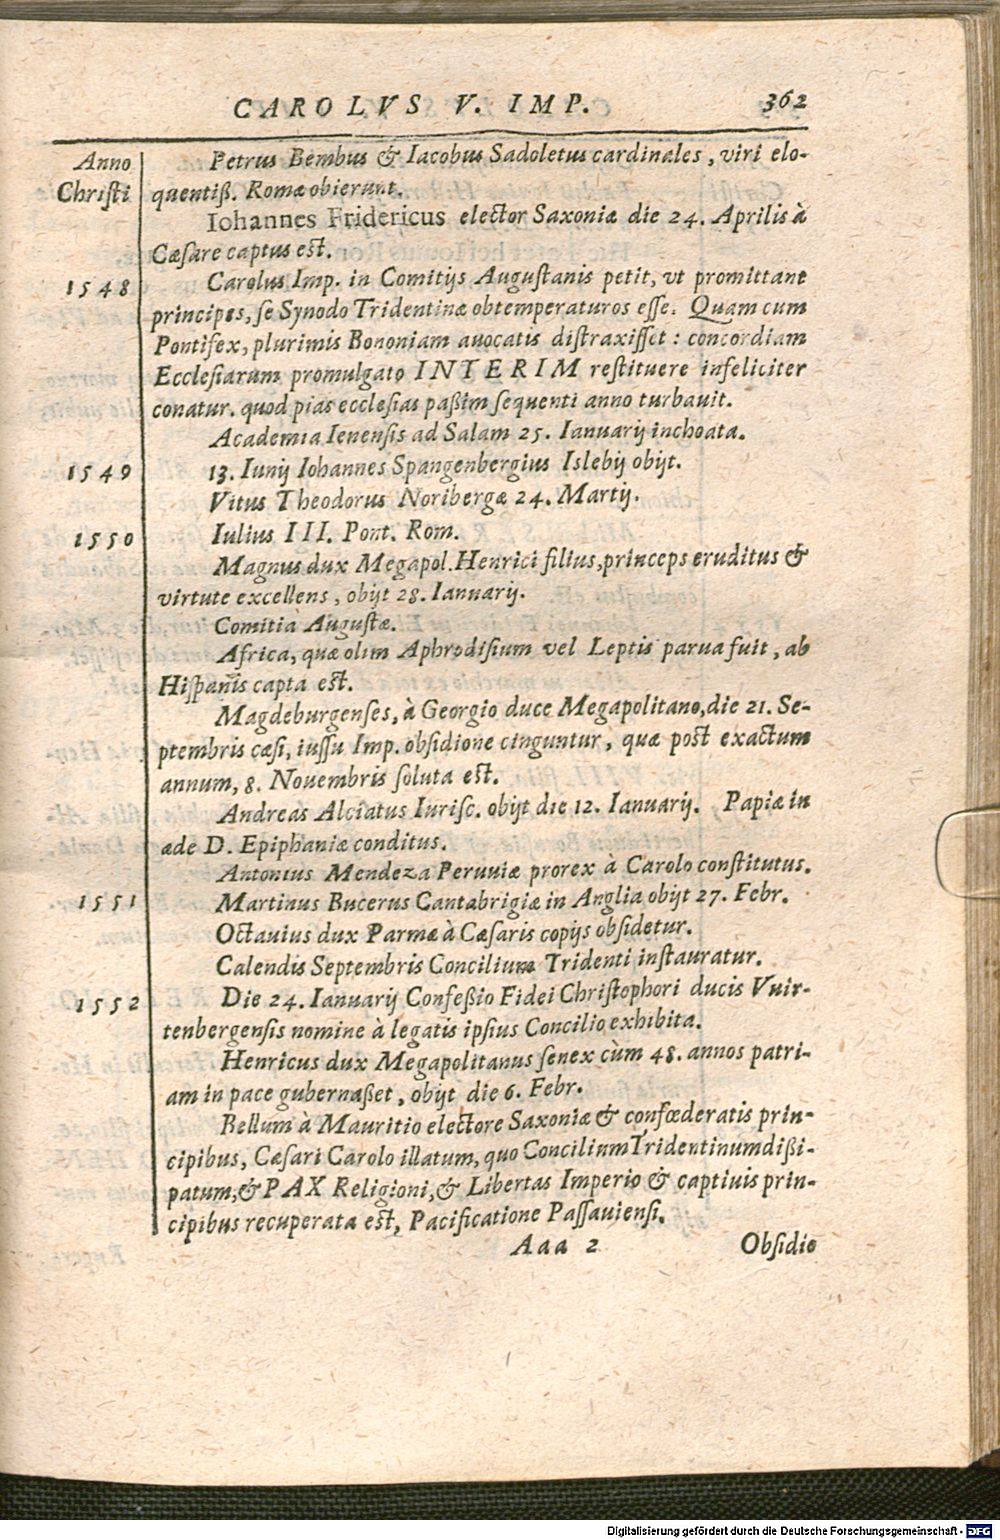 CAROLVS V. IMP. 362
Anno Petrus Bembus & Iacobus Sadoletus cardinales, viri elo-
Christi quentiß. Romæ obierunt.
Iohannes Fridericus elector Saxoniæ die 24. Aprilis à
Cæsare captus est.
1548 Carolus Imp. in Comitijs Augustanis petit, vt promittant
principes, se Synodo Tridentinæ obtemperaturos esse. Quam cum
Pontifex, plurimis Bononiam auocatis distraxisset: concordiam
Ecclesiarum promulgato INTERIM restituere infeliciter
conatur. quod pias ecclesias paßim sequenti anno turbauit.
Academia Ienensis ad Salam 25. Ianuarij inchoata.
1549 13. Iunij Iohannes Spangenbergius Islebij obijt.
Vitus Theodorus Noribergæ 24. Martij.
1550 Iulius III. Pont. Rom.
Magnus dux Megapol. Henrici filius, princeps eruditus &
virtute excellens, obijt 28. Ianuarij.
Comitia Augustæ.
Africa, quæ olim Aphrodisium vel Leptis parua fuit, ab
Hispanis capta est.
Magdeburgenses, à Georgio duce Megapolitano, die 21. Se-
ptembris cæsi, iussu Imp. obsidione cinguntur, quæ post exactum
annum, 8. Novembris soluta est.
Andreas Alciatus Iurisc. obijt die 12. Ianuarij. Papiæ in
æde D. Epiphaniæ conditus.
Antonius Mendeza Peruuiæ prorex à Carolo constitutus.
1551 Martinus Bucerus Cantabrigiæ in Anglia obijt 27. Febr.
Octauius dux Parmæ à Cæsaris copijs obsidetur.
Calendis Septembris Concilium Tridenti instauratur.
1552 Die 24. Ianuarij Confeßio Fidei Christophori ducis Vuir-
tenbergensis nomine à legatis ipsius Concilio exhibita.
Henricus dux Megapolitanus senex cùm 48. annos patri-
am in pace gubernaßet, obijt die 6. Febr.
Bellum à Mauritio electore Saxoniæ & confœderatis prin-
cipibus, Cæsari Carolo illatum, quo Concilium Tridentinum dißi-
patum, & PAX Religioni, & Libertas Imperio & captiuis prin-
cipibus recuperata est, Pacificatione Passauiensi.
Aaa 2 Obsidio
Digitalisierung gefördert durch die Deutsche Forschungsgemeinschaft - DFG